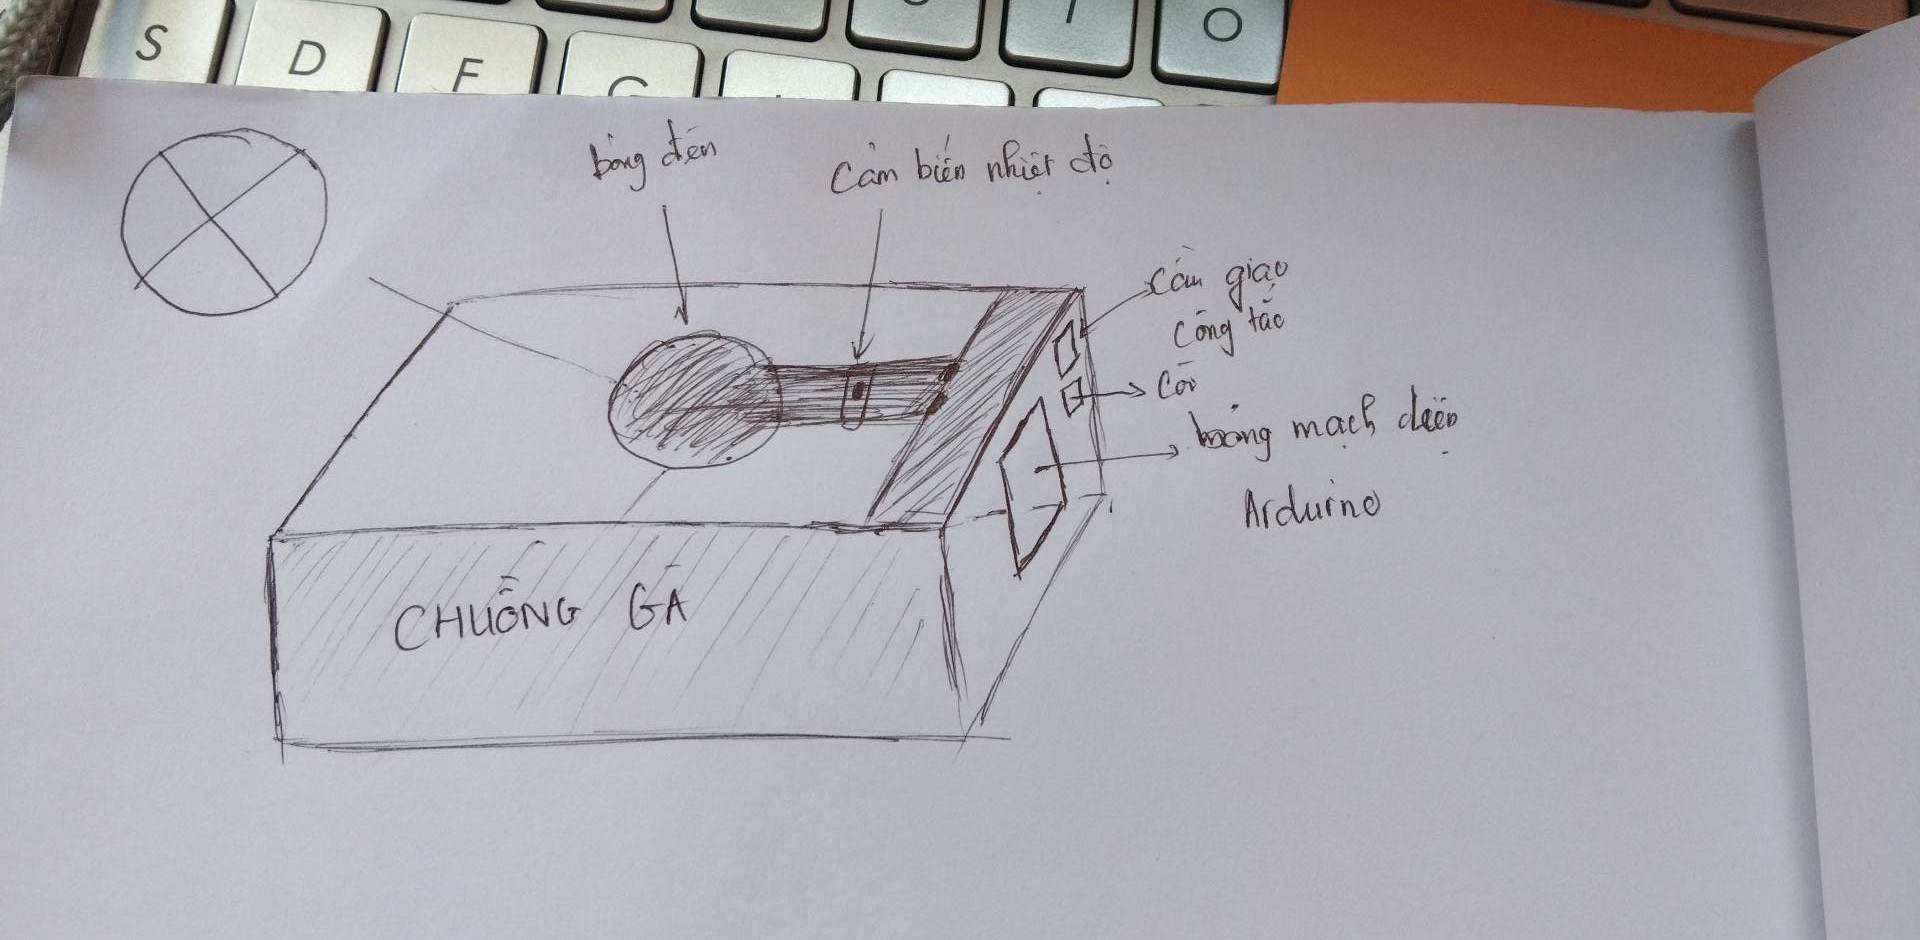 S D F G I O
bóng đèn
Cảm biến nhiệt độ
Cầu giao
Công tắc
Còi
bảng mạch điện
Arduino
CHUỒNG GÀ